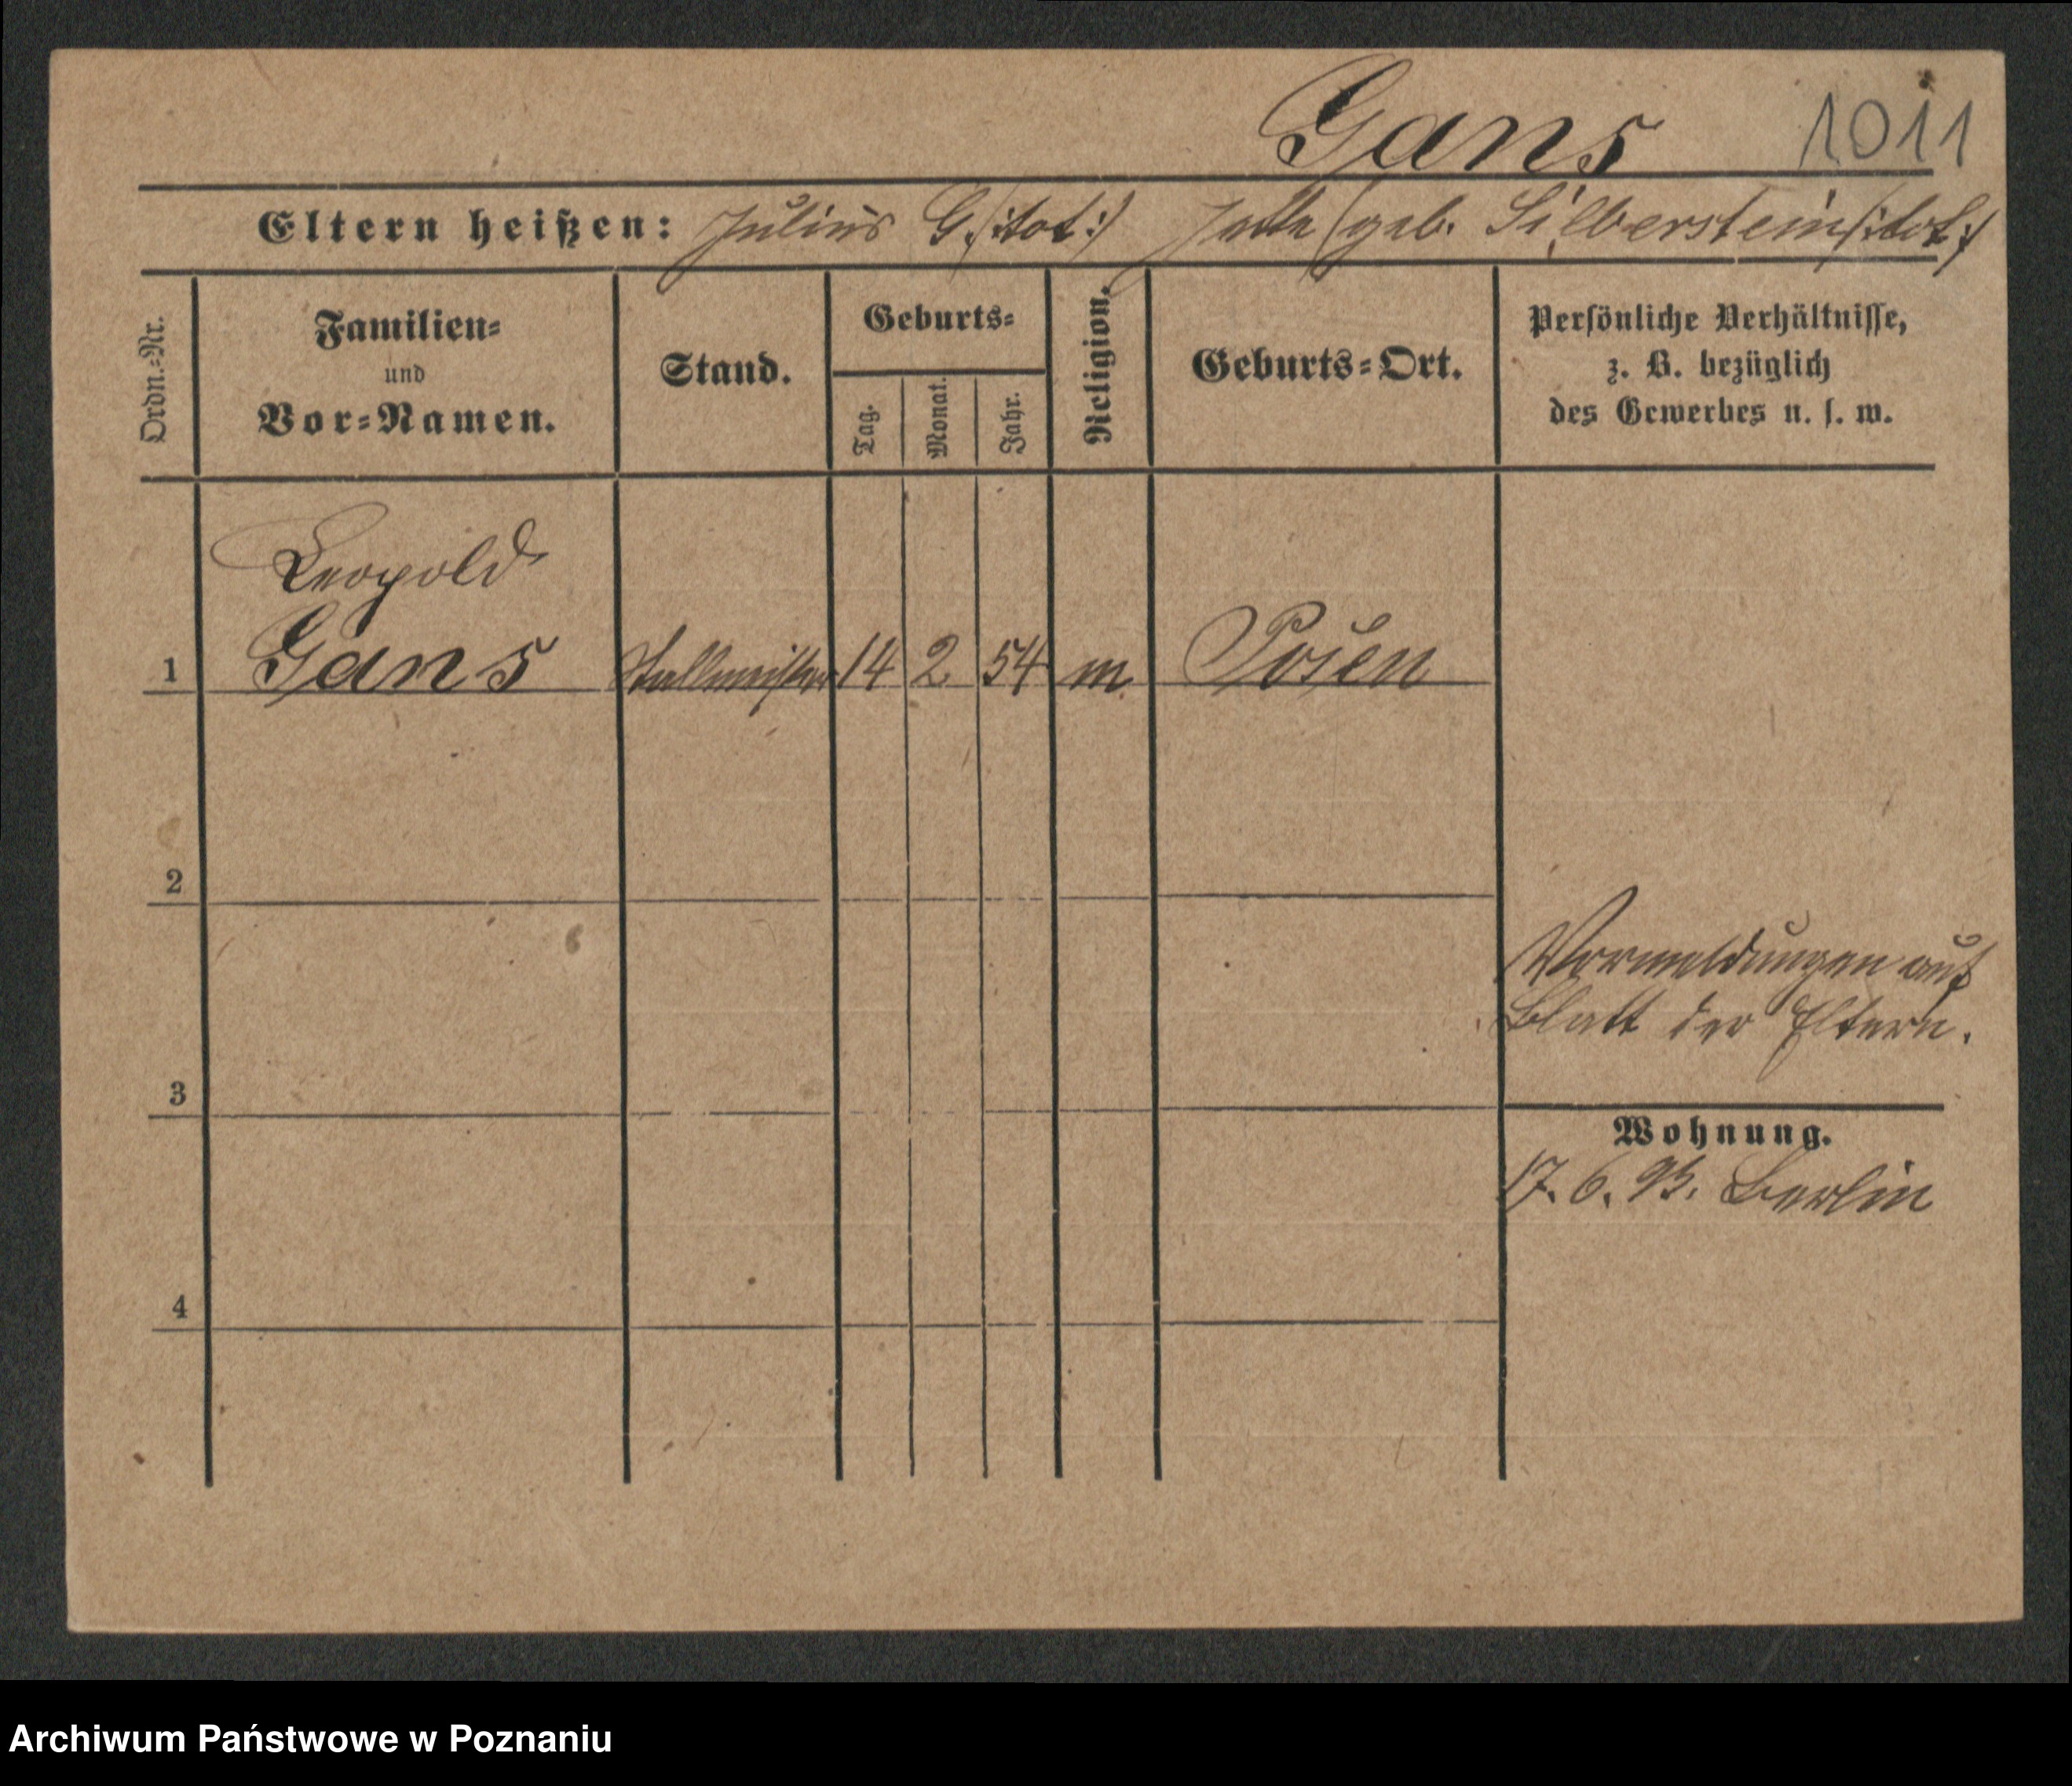 Gans 1011
Eltern heißen: Julius G. /:tot:/ Jette /geb. Silberstein /:tot:/
Ordn.=Nr.
Familien=
und
Vor=Namen.
Stand.
Geburts=
Tag.
Monat.
Jahr.
Religion.
Geburts=Ort.
Persönliche Verhältnisse,
z. B. bezüglich
des Gewerbes u. s. w.
Leopold
1 Gans Stallmeister 14 2 54 m. Posen
2
Vormeldungen auf
Blatt der Eltern.
3
Wohnung.
17. 6. 93. Berlin
4
Archiwum Państwowe w Poznaniu